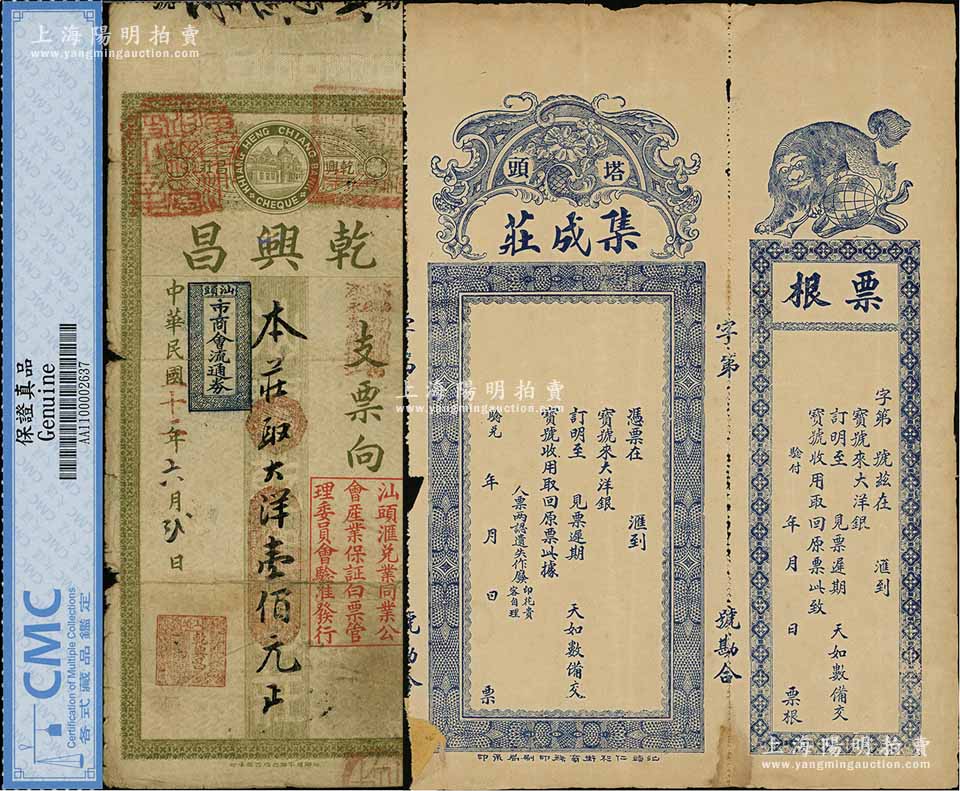 上海陽明拍賣
www.yangmingauction.com
保證真品
Genuine
AA11100002637
CMC
Certification of Multiple Collections
各式藏品鑑定
CHHIANG HENG CHIANG BANK
CHEQUE
乾興
昌莊
乾興昌
支票向
本莊取大洋壹佰元正
汕頭
市商會流通券
中華民國二十二年六月弐日
汕頭滙兌業同業公
會產業保証白票管
理委員會驗准發行
上海陽明拍賣
www.yangmingauction.com
塔頭
集成莊
憑票在 滙到
寳號來大洋銀
訂明至 見票遲期 天如數備交
寳號收用取回原票此據
人票両認遺失作廢印花貴客自理
驗兌 年 月 日 票
字第 號勘合
票根
字第 號茲在 滙到
寳號來大洋銀
訂明至 見票遲期 天如數備交
寳號收用取回原票此致
驗付 年 月 日 票根
上海陽明拍賣
www.yangmingauction.com